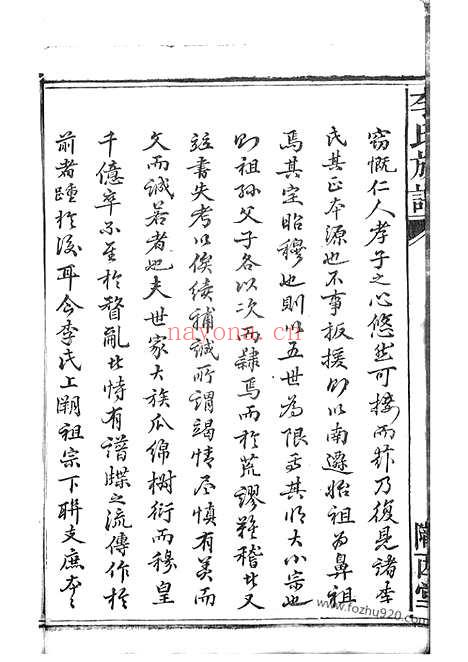 李氏族譜
隴西堂
竊慨仁人孝子之心悠然可接而於乃復見諸李
氏其正本源也不事扳援則以南遷始祖為鼻祖
焉其定昭穆也則以五世為限焉其順大小宗也
則祖孫父子各以次而隸焉而於荒謬難稽也又
註書失考以俟續補誠所謂竭情尽慎有美而
文而誠若者也夫世家大族瓜綿樹衍而穆皇
千億卒不至於瞀亂者恃有譜牒之流傳作於
前者踵於後耳今李氏上溯祖宗下聯支庶本
nayona.cn
www.fozhu920.com